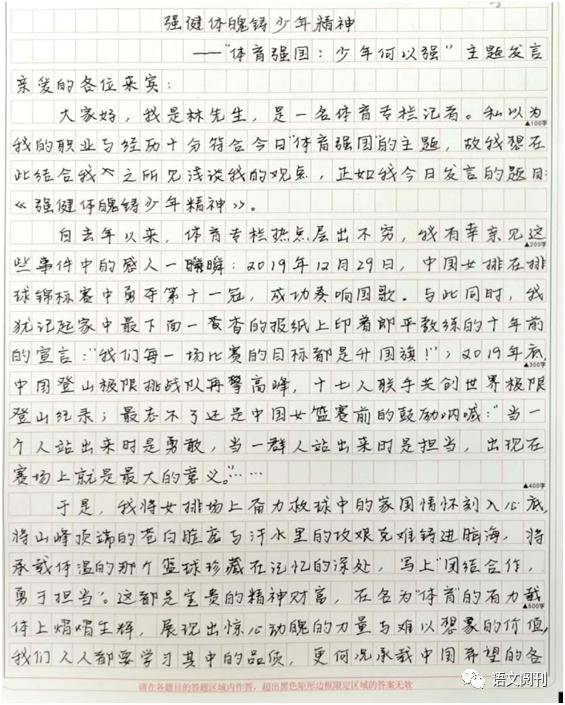 强健体魄铸少年精神
——"体育强国：少年何以强"主题发言
亲爱的各位来宾：
大家好，我是林先生，是一名体育专栏记者。私以为
▲100字
我的职业与经历十分符合今日"体育强国"的主题，故我想在
此结合我个人之所见浅谈我的观点，正如我今日发言的题目：
《强健体魄铸少年精神》。
自去年以来，体育专栏热点层出不穷，我有幸亲见这
▲200字
些事件中的感人一瞬：2019年12月29日，中国女排在排
球锦标赛中勇夺第十一冠，成功奏响国歌。与此同时，我
犹记起家中最下面一沓的报纸上印着郎平教练的十年前
的宣言："我们每一场比赛的目标都是升国旗！"；2019年底，
▲300字
中国登山极限挑战队再攀高峰，十七人联手共创世界极限
登山纪录；最忘不了还是中国女篮赛前的鼓励呐喊："当一
个人站出来时是勇敢，当一群人站出来时是担当，出现在
赛场上就是最大的意义。"……
▲400字
于是，我将女排场上奋力救球中的家国情怀刻入心底，
将山峰顶端的苍白雌鹿与汗水里的攻艰克难铸进脑海，将
承载体温的那个篮球珍藏在记忆的深处，写上"团结合作，
勇于担当"。这都是宝贵的精神财富，在名为"体育"的有力载
▲500字
体上熠熠生辉，展现出惊心动魄的力量与难以想象的价值，
我们人人都要学习其中的品质，更何况承载中国希望的各
请在各题目的答题区域内作答，超出黑色矩形边框限定区域的答案无效
语文阅刊